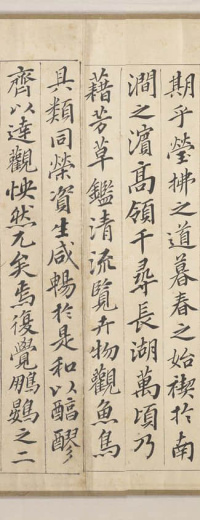 期乎瑩拂之道暮春之始禊於南
澗之濱高領千尋長湖萬頃乃
藉芳草鑑清流覽卉物觀魚鳥
具類同榮資生咸暢於是和以醇醪
齊以達觀怏然兀矣焉復覺鵬鷃之二